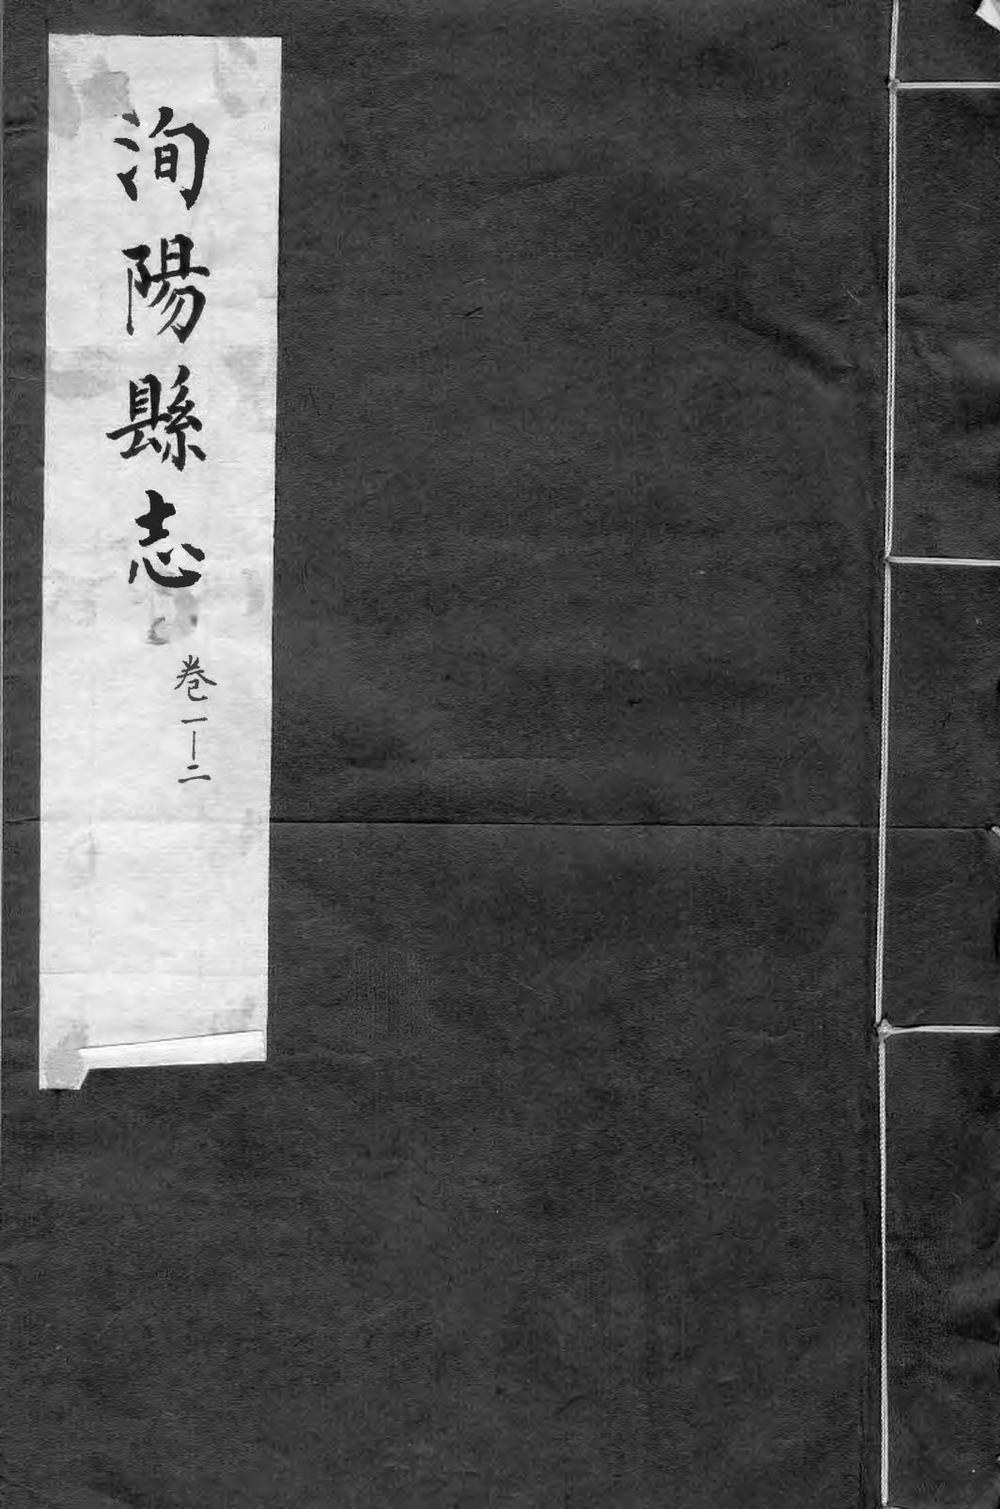 洵陽縣志
卷一—二